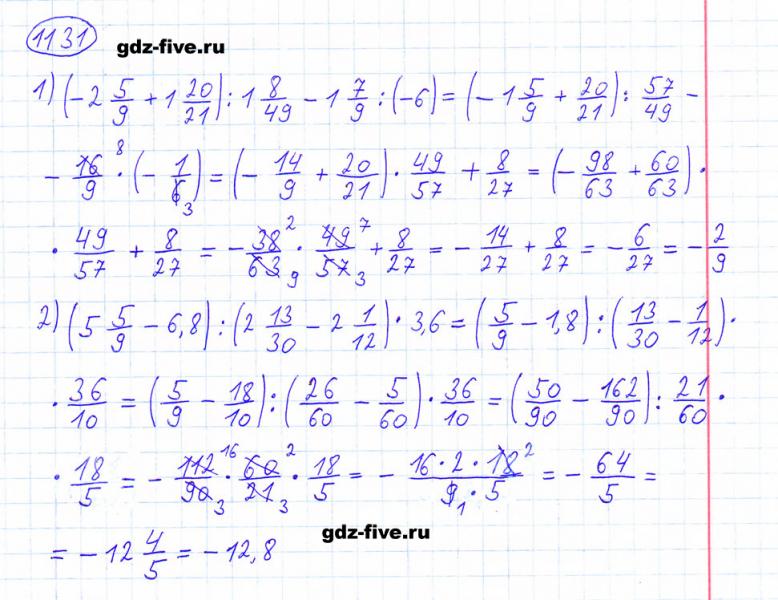 1131 gdz-five.ru
1) (-2 5/9 + 1 20/21) : 1 8/49 - 1 7/9 : (-6) = (-1 5/9 + 20/21) : 57/49 -
- 16/9 8 · (- 1/6 3) = (- 14/9 + 20/21) · 49/57 + 8/27 = (- 98/63 + 60/63) ·
· 49/57 + 8/27 = - 38 2/63 9 · 49 7/57 3 + 8/27 = - 14/27 + 8/27 = - 6/27 = - 2/9
2) (5 5/9 - 6,8) : (2 13/30 - 2 1/12) · 3,6 = (5/9 - 1,8) : (13/30 - 1/12) ·
· 36/10 = (5/9 - 18/10) : (26/60 - 5/60) · 36/10 = (50/90 - 162/90) : 21/60 ·
· 18/5 = - 112 16/90 3 · 60 2/21 3 · 18/5 = - 16 · 2 · 18 2/9 1 · 5 = - 64/5 =
= - 12 4/5 = - 12,8 gdz-five.ru